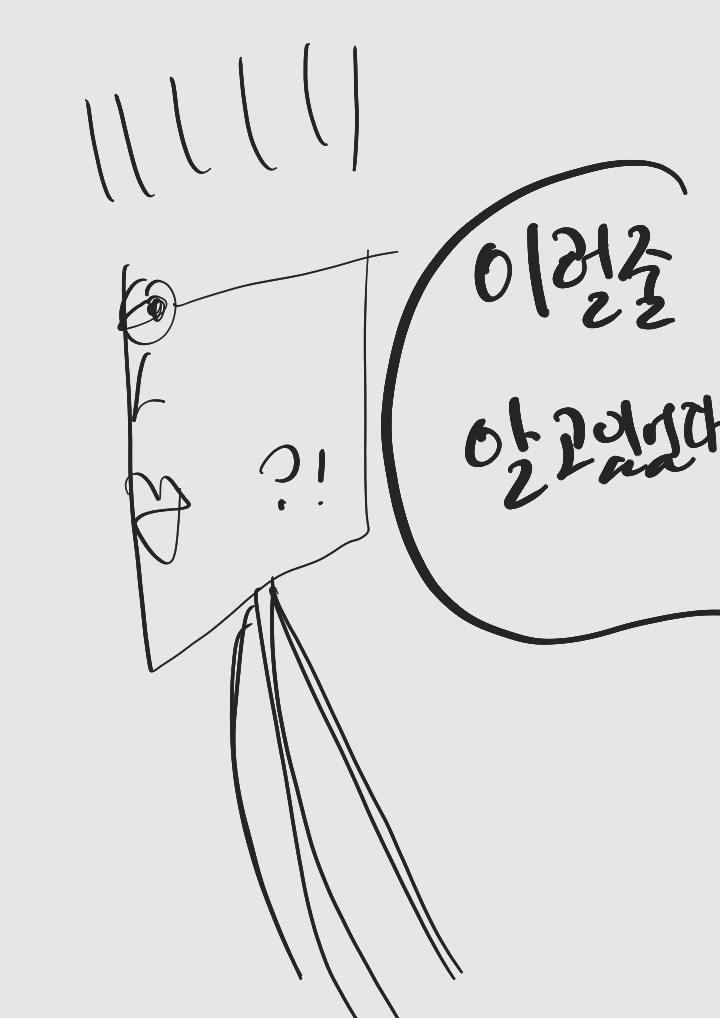 이럴줄
알고있었다
?!